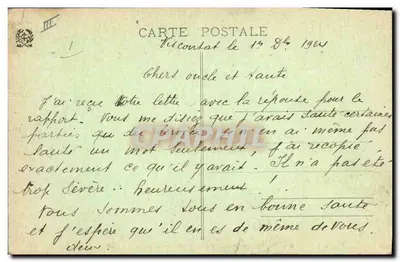 III
1
CARTE POSTALE
Viscontat le 1er Dbr 1921
Chers oncle et tante
J'ai reçu votre lettre avec la réponse pour le
rapport. Vous me disiez que j'avais sauté certaines
parties, que de je n'en ai même pas
sauté un mot seulement, j'ai recopié
exactement ce qu'il y avait. Il n'a pas été
trop sévère heureusement.
Nous sommes tous en bonne santé
et j'espère qu'il en es de même de vous
deux.